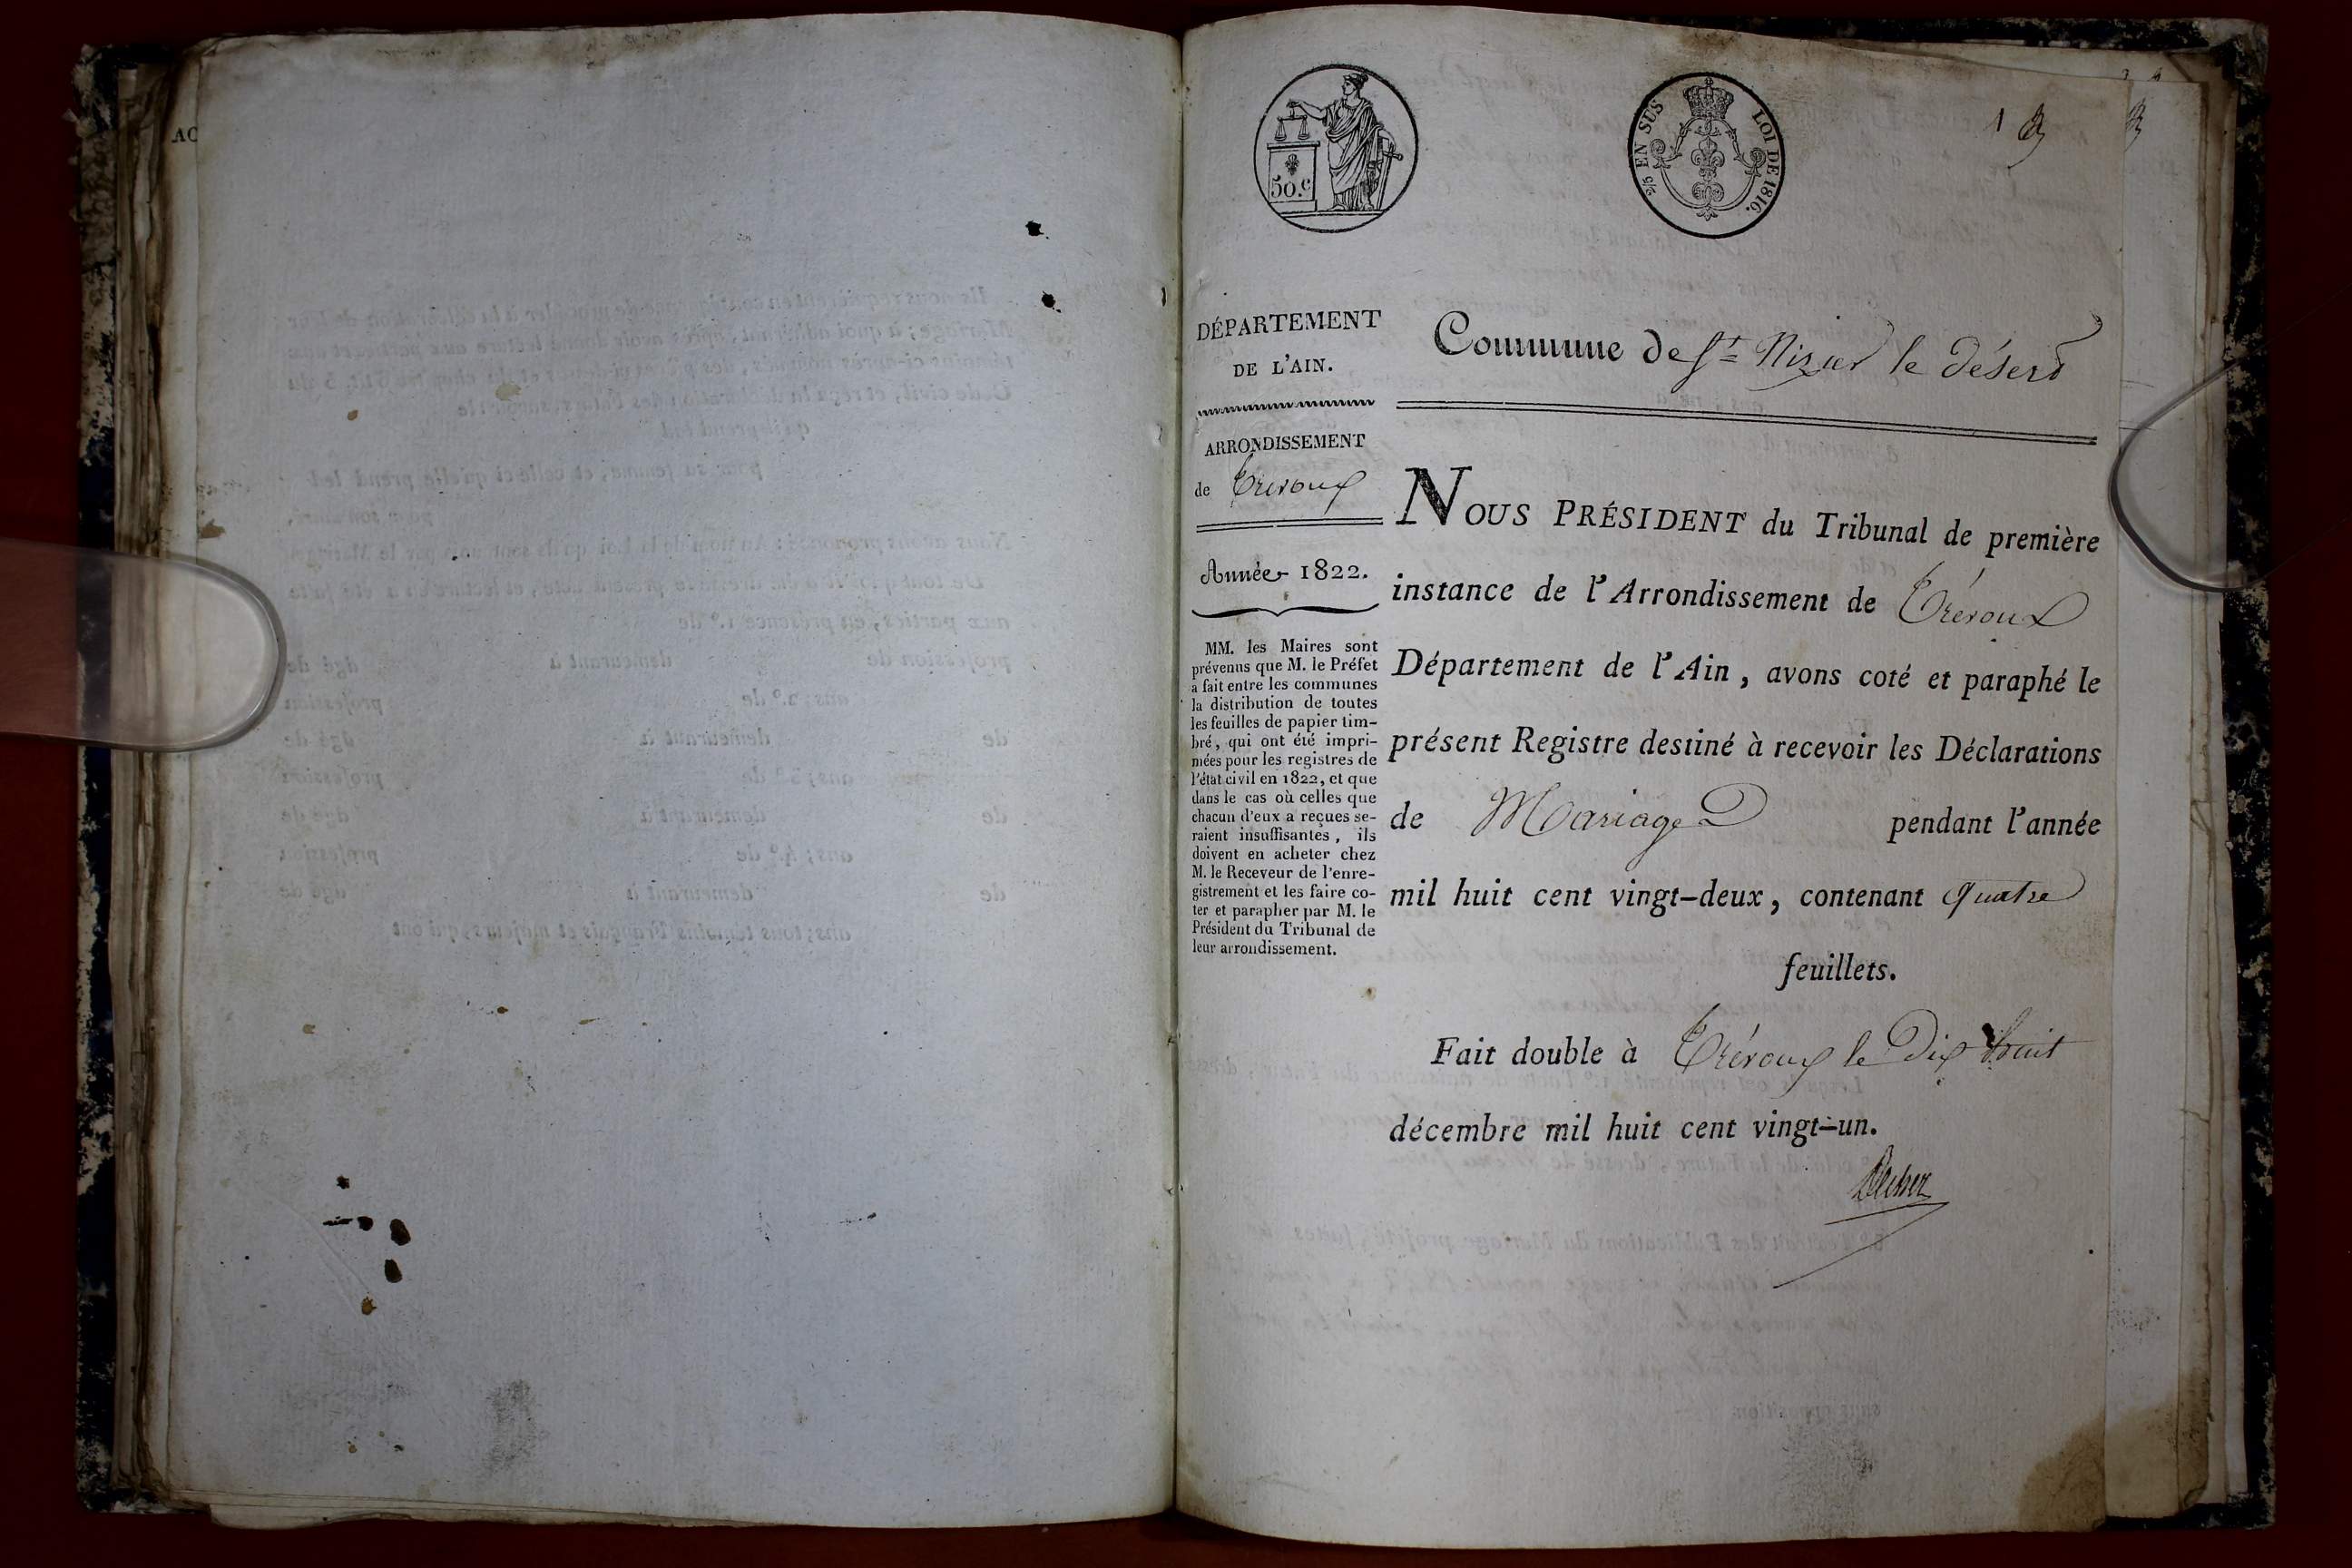 AC
50.c
2/5 EN SUS LOI DE 1816.
1
DÉPARTEMENT
DE L'AIN.
ARRONDISSEMENT
de Trévoux
Année 1822.
MM. les Maires sont
prévenus que M. le Préfet
a fait entre les communes
la distribution de toutes
les feuilles de papier tim-
bré, qui ont été impri-
mées pour les registres de
l'état civil en 1822, et que
dans le cas où celles que
chacun d'eux a reçues se-
raient insuffisantes, ils
doivent en acheter chez
M. le Receveur de l'enre-
gistrement et les faire co-
ter et parapher par M. le
Président du Tribunal de
leur arrondissement.
Commune de St Nizier le désert
NOUS PRÉSIDENT du Tribunal de première
instance de l'Arrondissement de Trévoux
Département de l'Ain, avons coté et paraphé le
présent Registre destiné à recevoir les Déclarations
de Mariage pendant l'année
mil huit cent vingt-deux, contenant quatre
feuillets.
Fait double à Trévoux le Dix huit
décembre mil huit cent vingt-un.